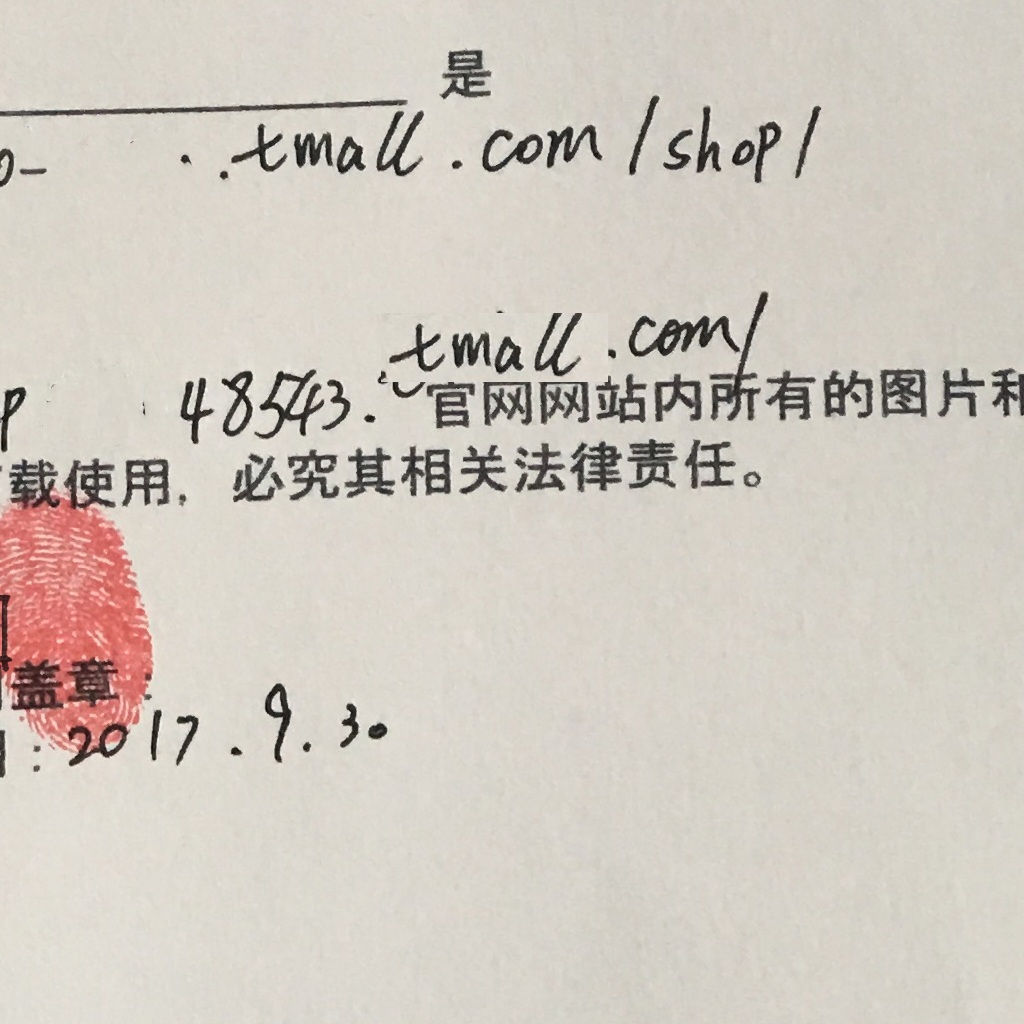 是
.tmall.com/shop/
tmall.com/
p 48543. 官网网站内所有的图片和
载使用，必究其相关法律责任。
盖章：
：2017.9.30